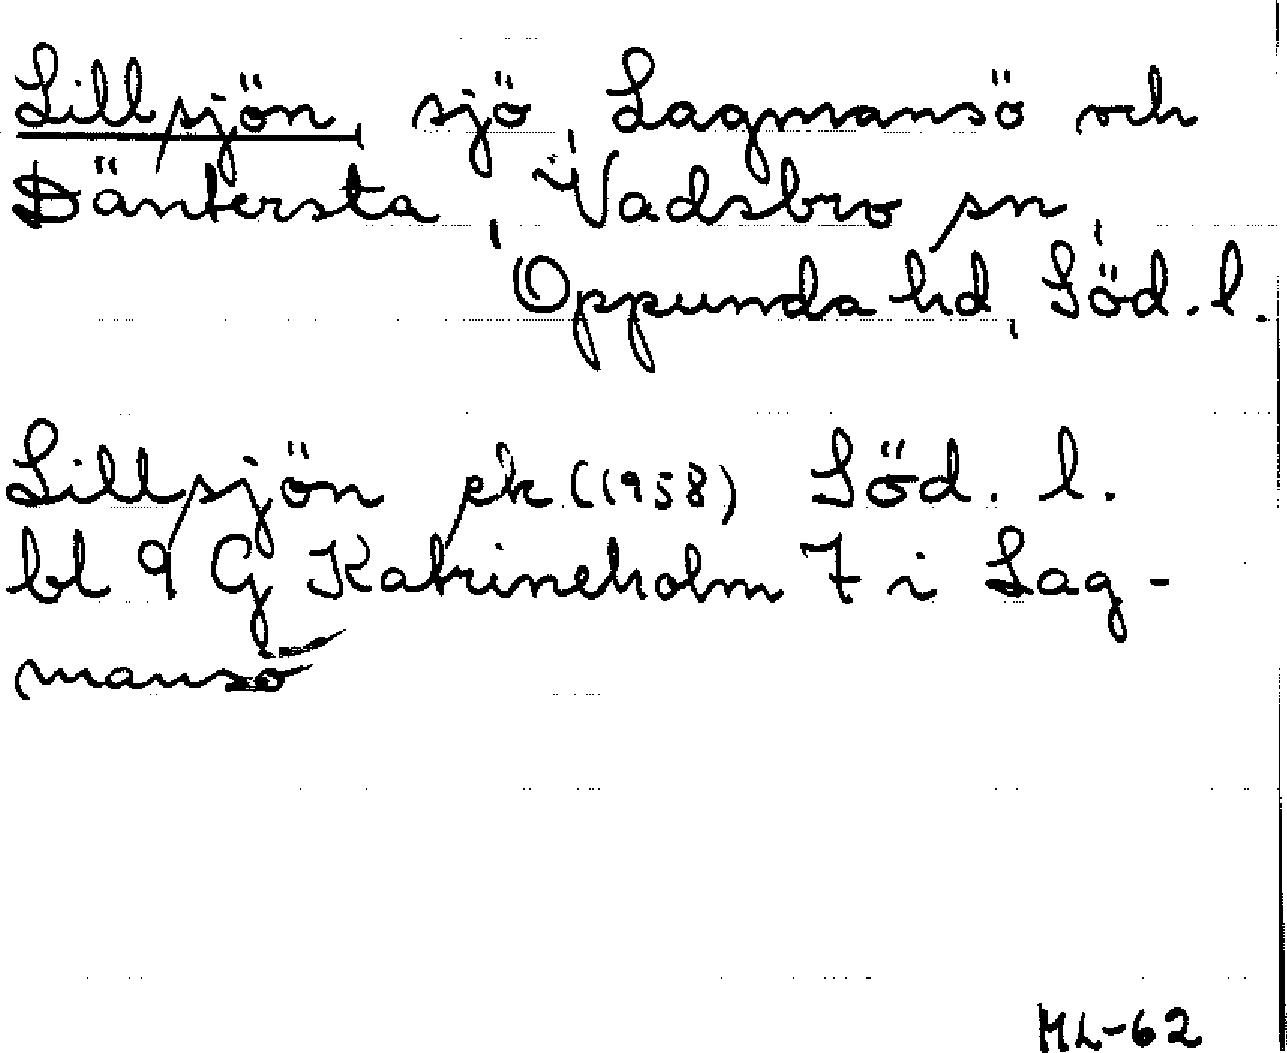 Lillsjön, sjö, Lagmansö och
Däntersta, Vadsbro sn,
Oppunda hd, Söd. l.
Lillsjön ek (1958) Söd. l.
bl 9 G Katrineholm 7 i Lag-
mansö
ML-62